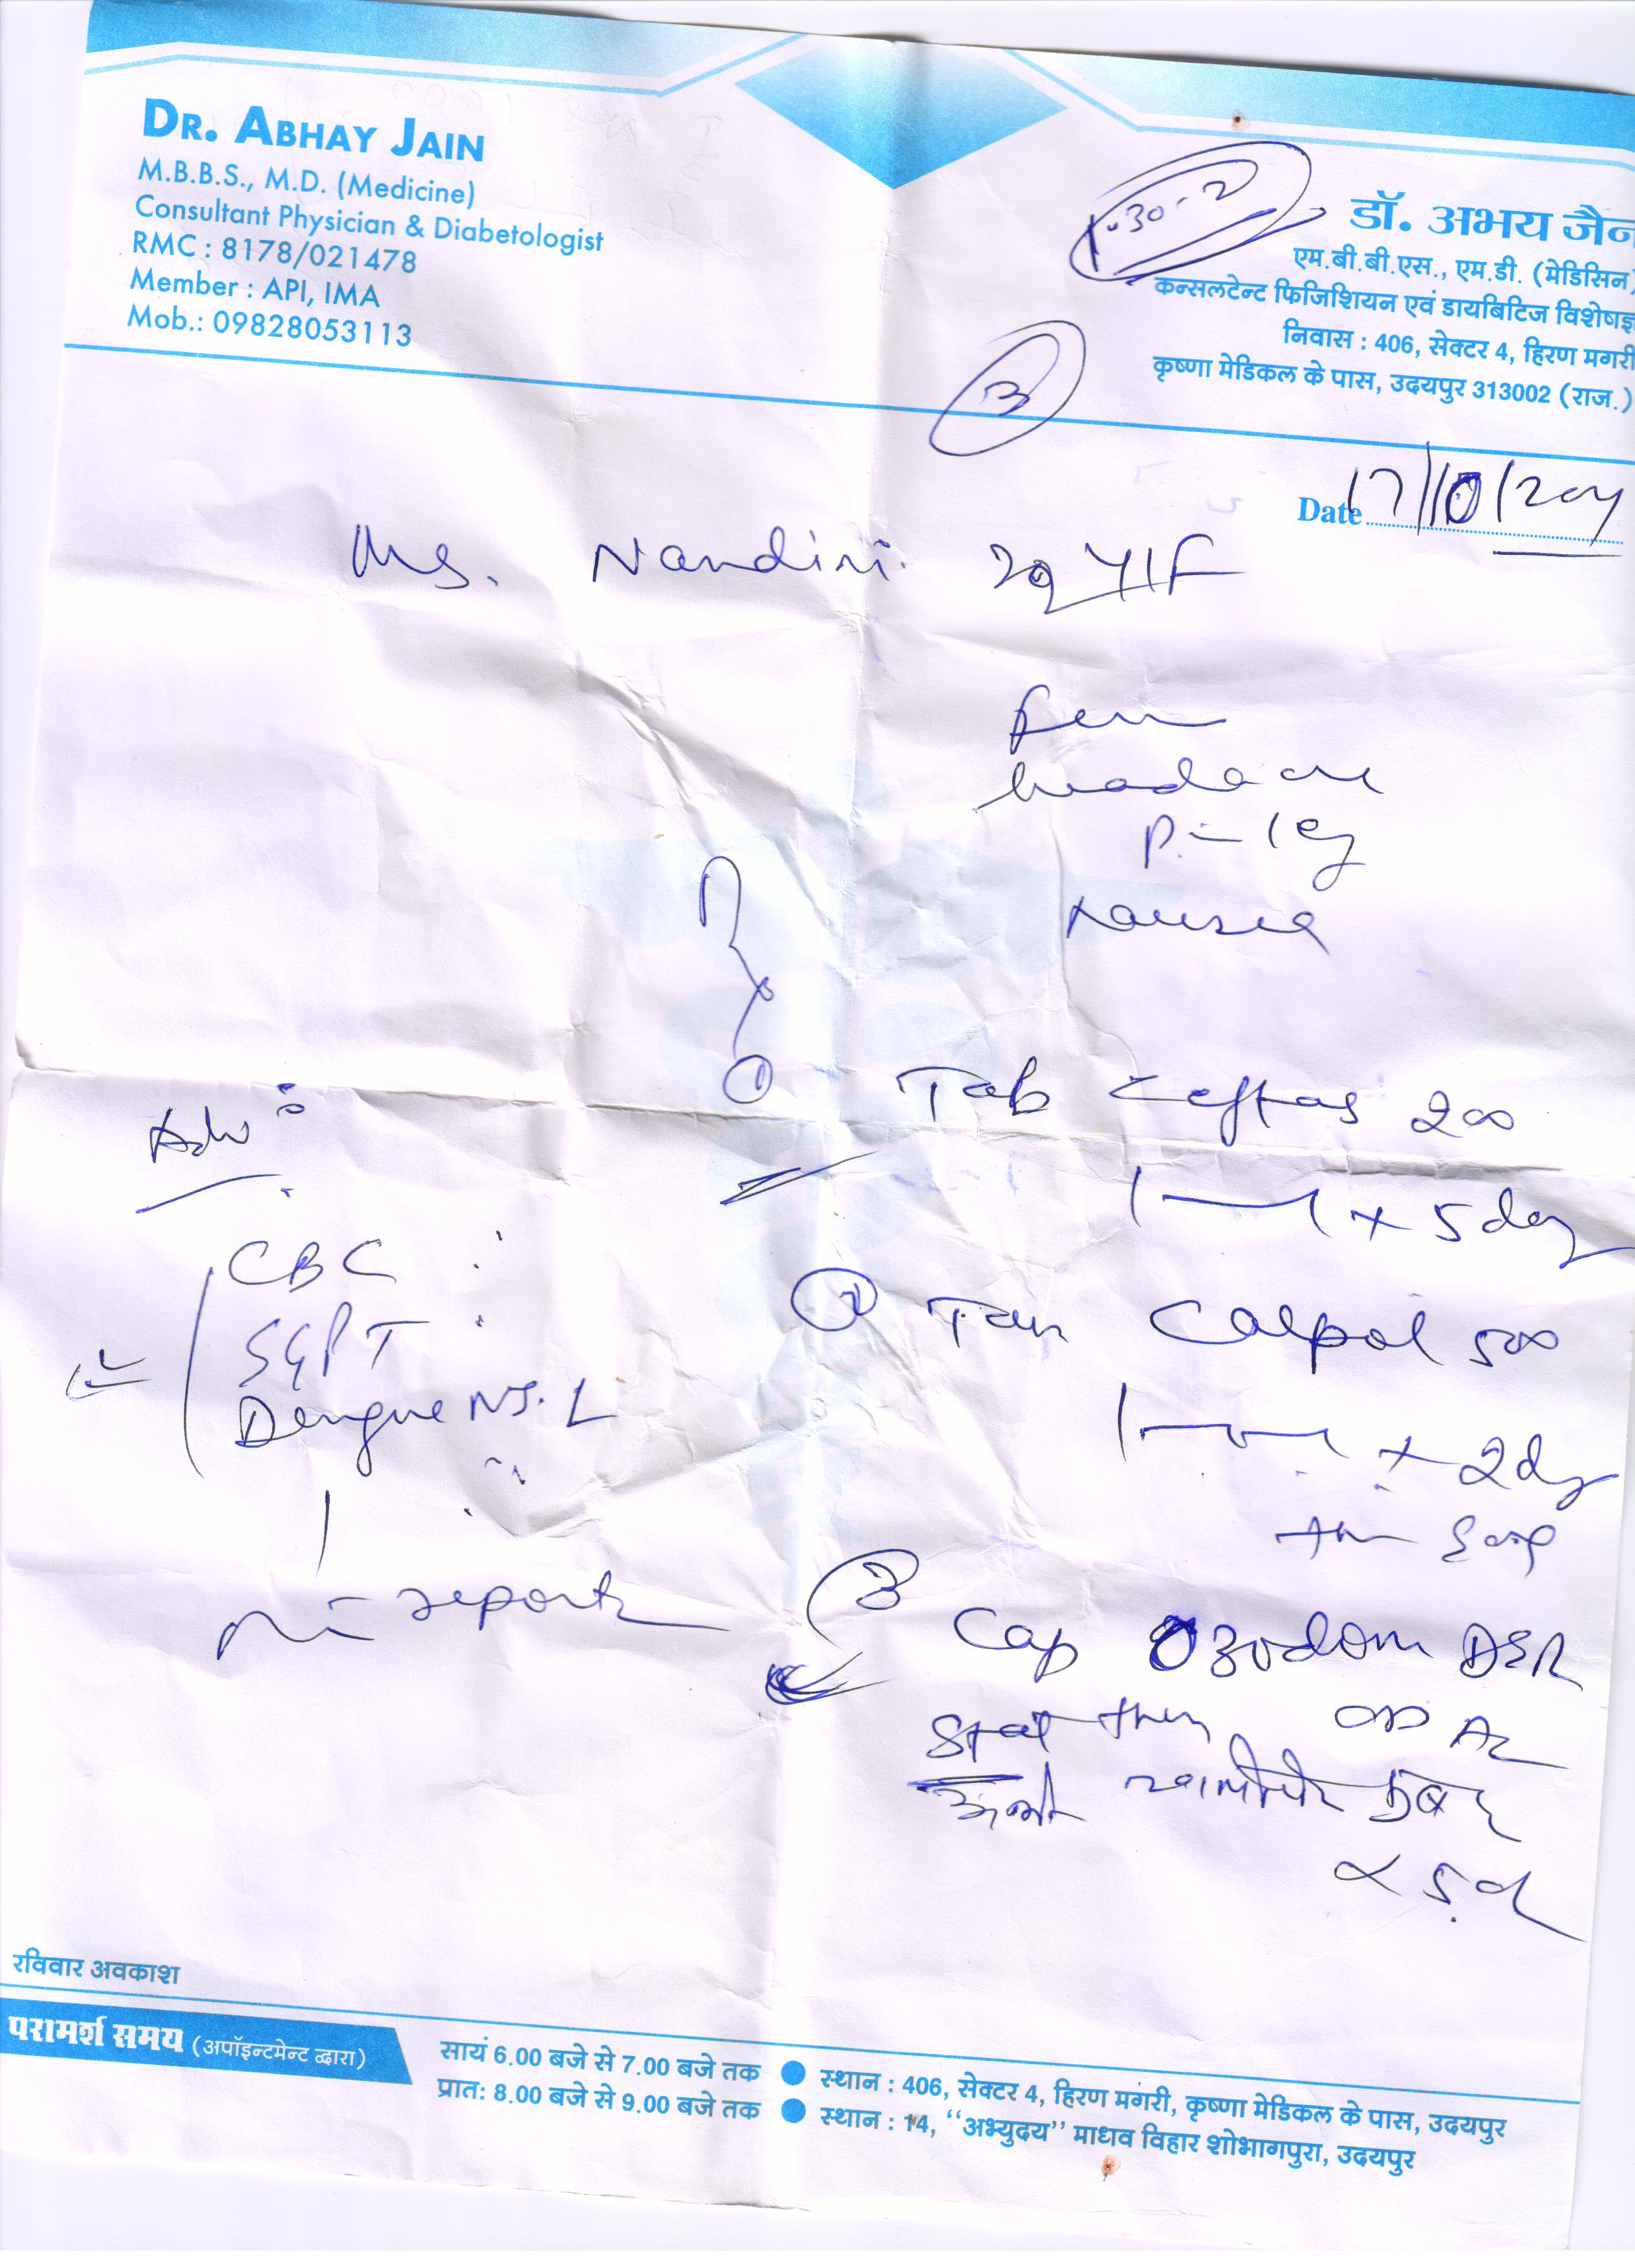 DR. ABHAY JAIN
M.B.B.S., M.D. (Medicine)
Consultant Physician & Diabetologist
RMC : 8178/021478
Member : API, IMA
Mob.: 09828053113
1-30-2
डॉ. अभय जैन
एम.बी.बी.एस., एम.डी. (मेडिसिन)
कन्सलटेन्ट फिजिशियन एवं डायबिटिज विशेषज्ञ
निवास : 406, सेक्टर 4, हिरण मगरी
कृष्णा मेडिकल के पास, उदयपुर 313002 (राज.)
3
Date 17/10/
Ms. Nandini Y/F
Fever
headache
nausea
Rx
① Tab Ceftas 200
1—1 x 5 day
② Tab Calpol 500
x 2 day
then
③ Cap Ozodom DSR
Stat then OD AC
अभी खालीपेट सुबह
x 5 d
Adv :
CBC
SGPT
Dengue NS. 1
reports
रविवार अवकाश
परामर्श समय (अपॉइन्टमेन्ट द्वारा)
सायं 6.00 बजे से 7.00 बजे तक ● स्थान : 406, सेक्टर 4, हिरण मगरी, कृष्णा मेडिकल के पास, उदयपुर
प्रात: 8.00 बजे से 9.00 बजे तक ● स्थान : 14, “अभ्युदय” माधव विहार शोभागपुरा, उदयपुर